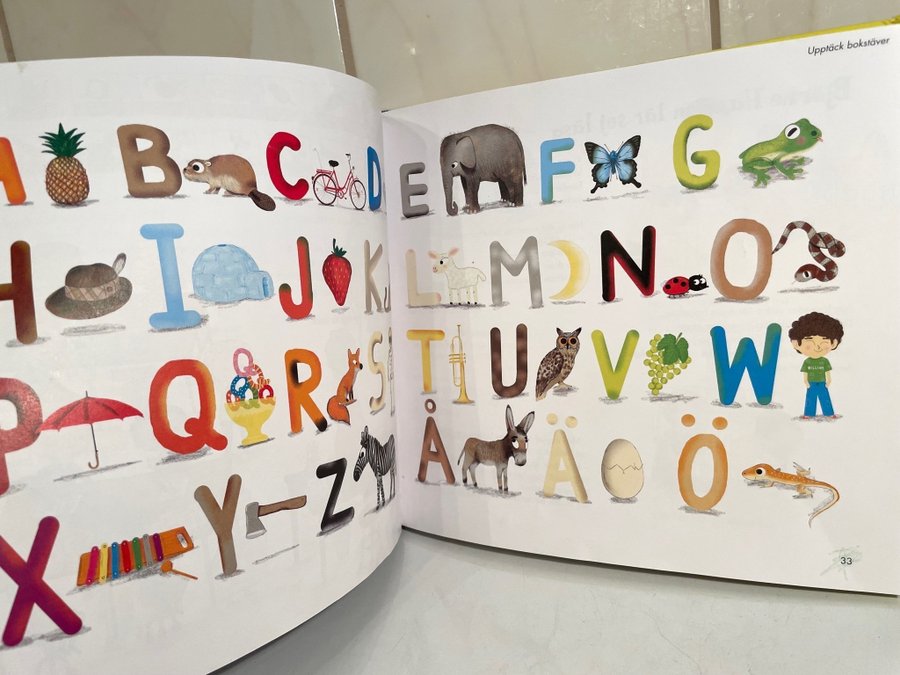 Upptäck bokstäver
A B C D E F G
H I J K L M N O
P Q R S T U V W
WILLIAM
X Y Z Å Ä Ö
33